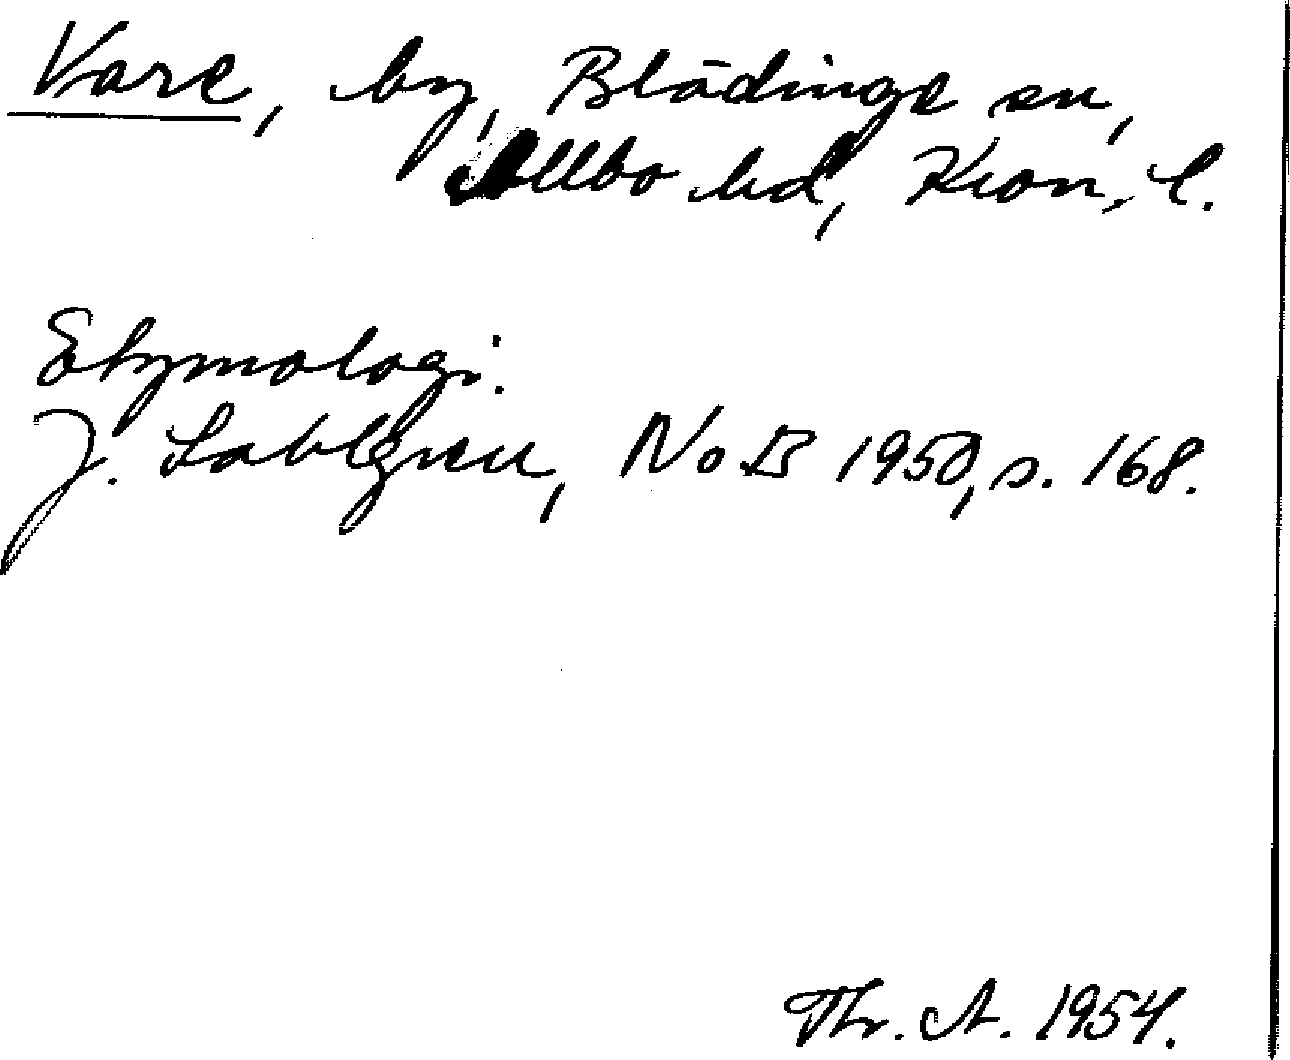 Vare, by, Blädinge sn,
Allbo hd, Kron. l.
Etymologi.
J. Sahlgren, NoB 1950, s. 168.
Th. A. 1954.